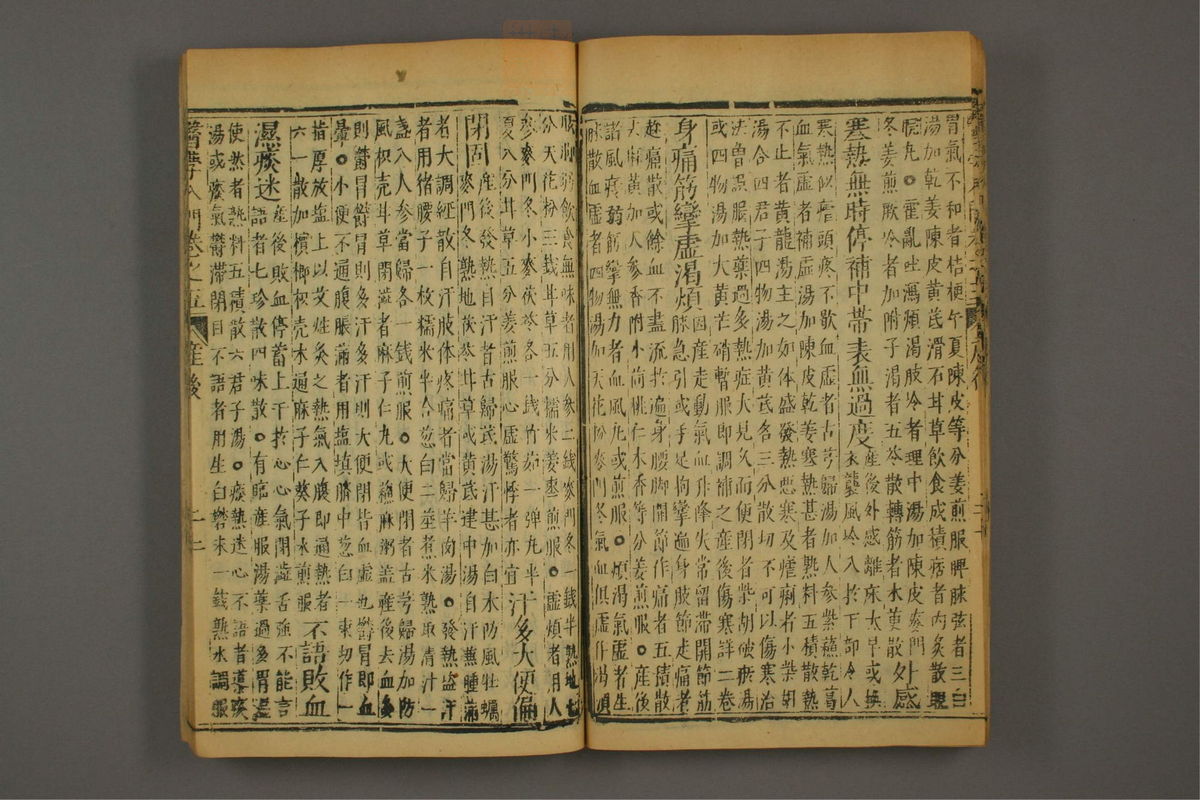 胃氣不和者桔梗午夏陳皮等分姜煎服脾脉弦者三白
湯加乾姜陳皮黃芪滑石甘草飲食成積痞者內炙散
睍丸○霍亂吐瀉煩渴肢冷者理中湯加陳皮麥門
冬姜煎厥冷者加附子渴者五苓散轉筋者木萸散外感
寒熱無時停補中帶表無過度產後外感離床太早或換
衣襲風冷入於下部令人
寒熱似瘧頭疼不歇血虛者古芎歸湯加人參紫蘇乾葛
血氣虛者補虛湯加陳皮乾姜寒熱甚者熟料五積散熱
不止者黃龍湯主之如体盛發熱惡寒及瘧痢者小柴胡
湯合四君子四物湯加黃芪各三分散切不可以傷寒治
法曾誤服熱藥過多熱症大見久而便閉者柴胡破瘀湯
或四物湯加大黃芒硝暫服即調補之產後傷寒詳二卷
身痛筋攣虛渴煩因產走動氣血升降失常留滯開節筋
脉急引或手足拘攣遍身肢節走痛者
趂痛散或餘血不盡流於遍身腰脚開節作痛者五積散
去麻黃加人參香附小茴桃仁木香等分姜煎服○產後
諸風痿弱筋攣無力者血風丸或煎服○煩渴氣虛者生
脉散血虛者四物湯加天花粉麥門冬氣血俱虛作渴頭
分天花粉三錢甘草五分糯米姜棗煎服○虛煩者用人
參麥門冬小麥茯苓各一錢竹茹一彈丸半
夏八分甘草五分姜煎服心虛驚悸者亦宜汗多大便偏
閉固產後發熱自汗者古歸芪湯汗甚加白朮防風牡蠣
麥門冬熟地茯苓甘草或黃芪建中湯自汗兼腫滿
者大調經散自汗肢体疼痛者當歸羊肉湯○發熱盜汗
者用猪腰子一枚糯米半合葱白二莖煮米熟取清汁一
盞入人參當歸各一錢煎服○大便閉者古芎歸湯加防
風枳壳甘草閉澁者麻子仁丸或蘇麻粥盖產後去血多
則鬱冒鬱冒則多汗多汗則大便閉皆血虛也鬱冒即血
暈○小便不通腹脹滿者用塩填臍中葱白一束切作一
指厚放塩上以艾炷灸之熱氣入腹即通熱者
六一散加檳榔枳壳木通麻子仁葵子水煎服不語敗血
濕痰迷產後敗血停蓄上干於心心氣閉澁舌強不能言
語者七珍散四味散○有臨產服湯藥過多胃濕
使然者熟料五積散六君子湯○痰熱迷心不語者導痰
湯或痰氣鬱滯閉目不語者用生白礬末一錢熱水調服
醫學入門卷之五 產後 二十二